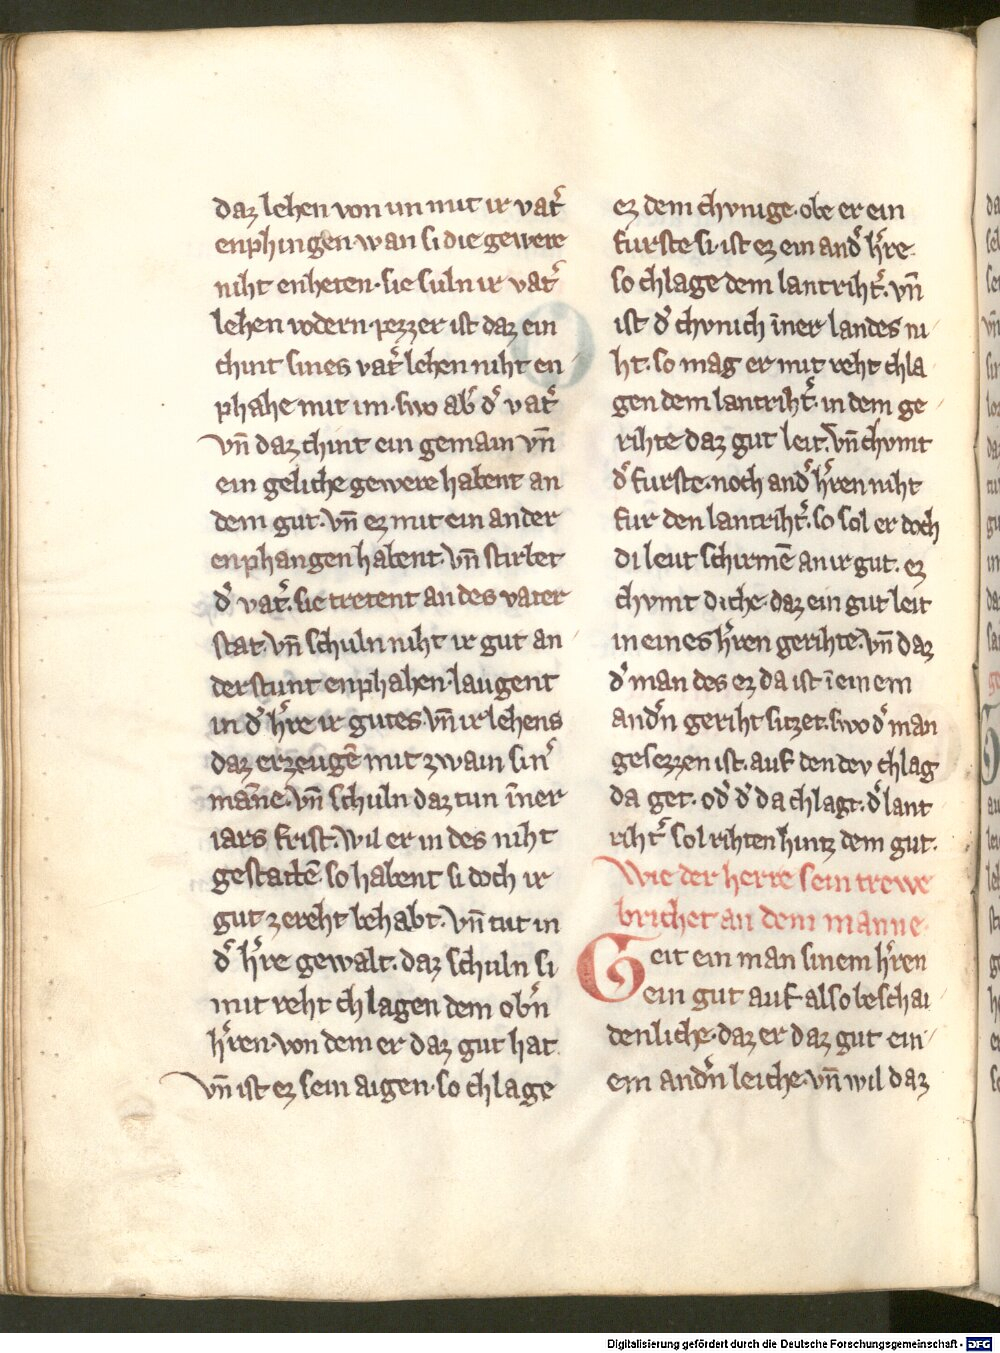 daz lehen von im mit ir vat͛
enphingen·wan si die gewere
niht enheten·sie suln ir vat͛
lehen vodern·pezzer ist daz ein
chint sines vat͛ lehen niht en
phahe mit im·swo ab͛ d͛ vat͛
vn̄ daz chint ein gemain vn̄
ein geliche gewere habent an
dem gut·vn̄ ez mit ein ander
enphangen habent·vn̄ stirbet
d͛ vat͛·sie tretent an des vater
stat·vn̄ schuln niht ir gut an
derstunt enphahen·laugent
in d͛ h͛re ir gutes·vn̄ ir lehens
daz erzeugē mit zwain sin͛
māne·vn̄ schuln daz tun īner
iars frist·wil er in des niht
gestatē·so habent si doch ir
gut zereht behabt·vn̄ tut in
d͛ h͛re gewalt·daz schuln si
mit reht chlagen dem ob͛n
h͛ren·von dem er daz gut hat·
vn̄ ist ez sein aigen·so chlage
ez dem chvnige·obe er ein
furste si·ist ez ein and͛ h͛re·
so chlage dem lantriht͛·vn̄
ist d͛ chvnich īner landes ni
ht·so mag er mit reht chla
gen dem lantriht͛·in dem ge
rihte daz gut leit·vn̄ chvmt
d͛ furste·noch and͛ h͛ren niht
fur den lantriht͛·so sol er doch
di leut schirmē an ir gut·ez
chvmt diche·daz ein gut leit
in eines h͛ren gerihte·vn̄ daz
d͛ man des ez da ist ī einem
and͛n geriht sitzet·swo d͛ man
gesezzen ist·auf den dev chlag
da get·od͛ d͛ da chlagt·d͛ lant
riht͛ sol rihten hintz dem gut·
Wie der herre sein trewe
brichet an dem manne·
Geit ein man sinem h͛ren
ein gut auf also beschai
denliche·daz er daz gut ein
em and͛n leiche·vn̄ wil daz
Digitalisierung gefördert durch die Deutsche Forschungsgemeinschaft - DFG